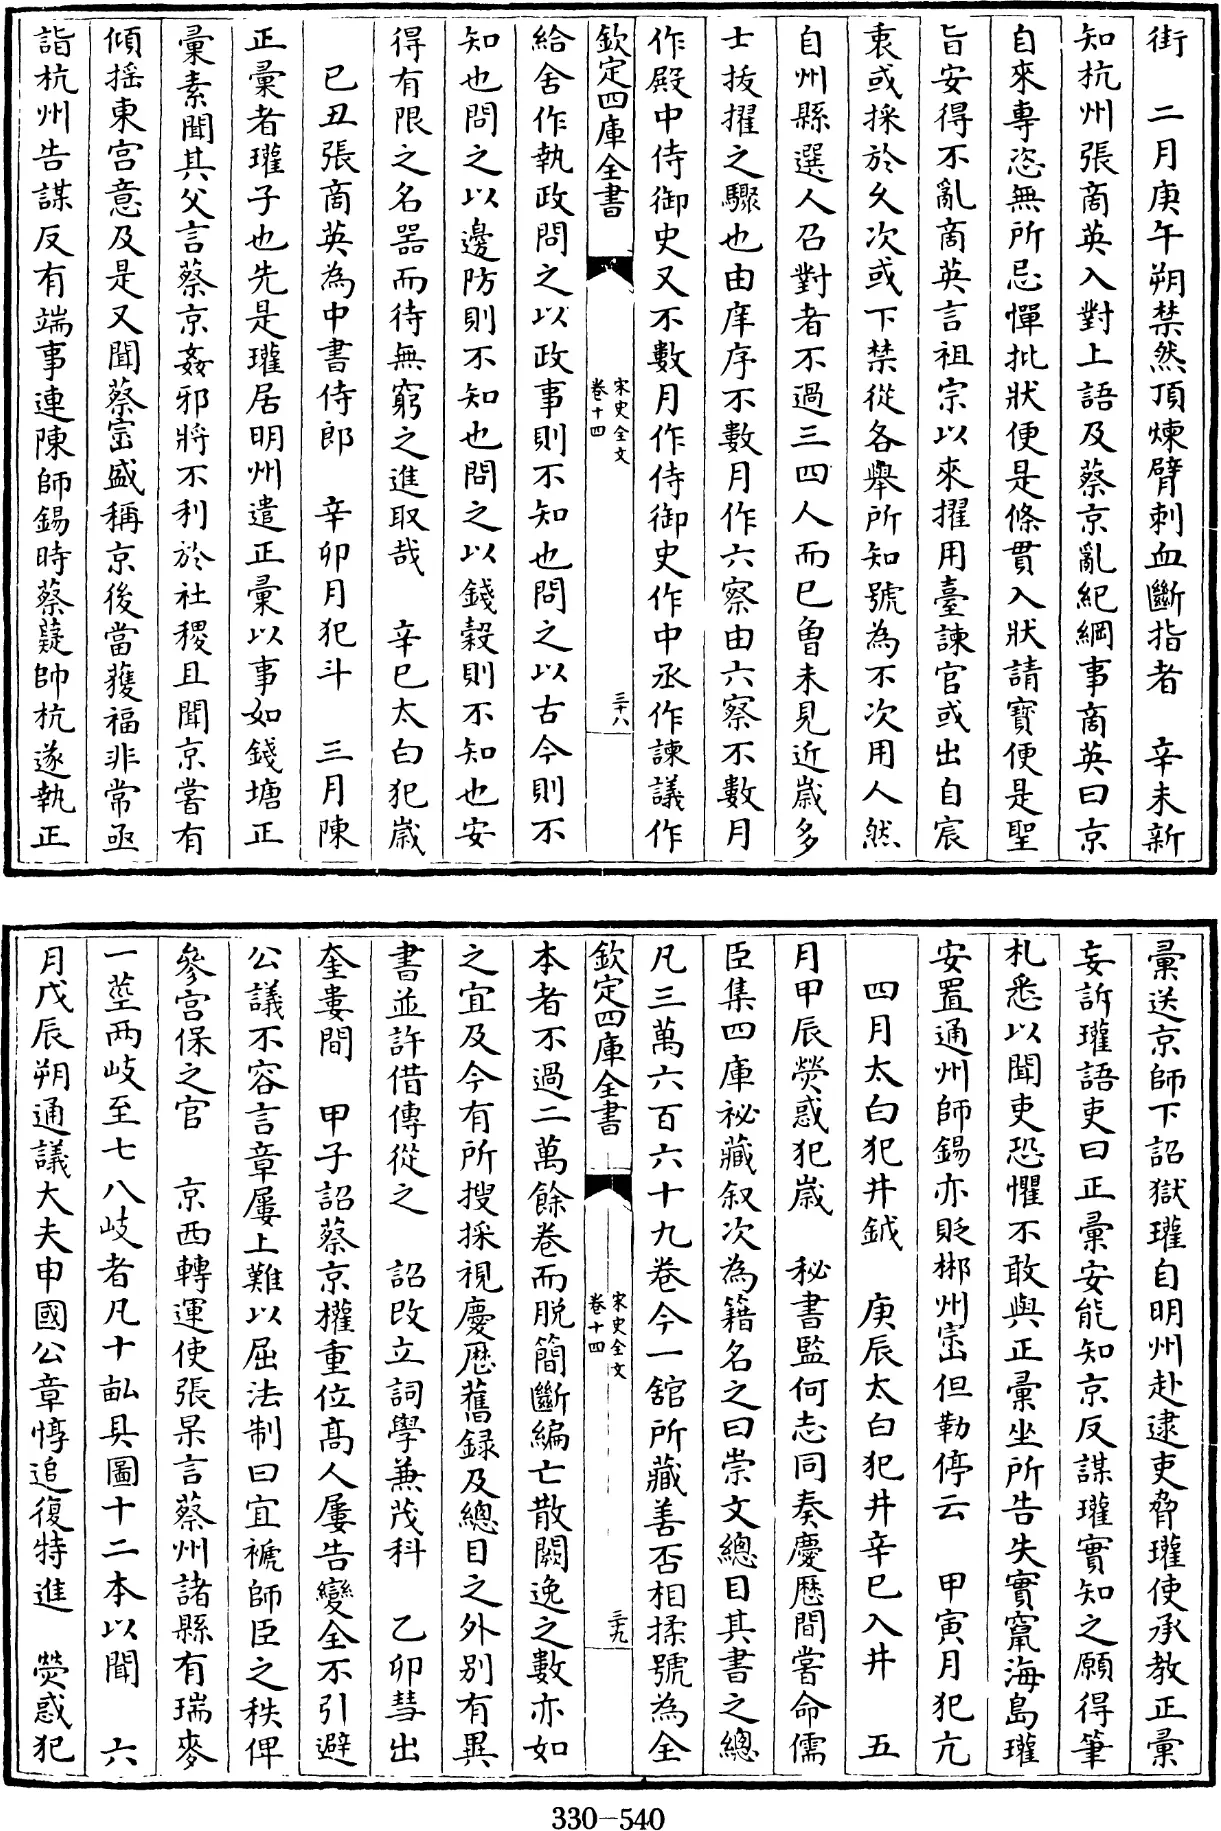 街　二月庚午朔禁然頂煉臂刺血斷指者　辛未新
知杭州張商英入對上語及蔡京亂紀綱事商英曰京
自來專恣無所忌憚批狀便是條貫入狀請寶便是聖
旨安得不亂商英言祖宗以來擢用臺諫官或出自宸
衷或採於久次或下禁從各舉所知號為不次用人然
自州縣選人召對者不過三四人而已魯未見近歲多
士拔擢之驟也由庠序不數月作六察由六察不數月
作殿中侍御史又不數月作侍御史作中丞作諫議作
欽定四庫全書
宋史全文
卷十四
三十八
給舍作執政問之以政事則不知也問之以古今則不
知也問之以邊防則不知也問之以錢穀則不知也安
得有限之名器而待無窮之進取哉　辛巳太白犯歲
己丑張商英為中書侍郎　辛卯月犯斗　三月陳
正彚者瓘子也先是瓘居明州遣正彚以事如錢塘正
彚素聞其父言蔡京姦邪將不利於社稷且聞京嘗有
傾搖東宮意及是又聞蔡崈盛稱京後當獲福非常亟
詣杭州告謀反有端事連陳師錫時蔡薿帥杭遂執正
彚送京師下詔獄瓘自明州赴逮吏脅瓘使承教正彚
妄訴瓘語吏曰正彚安能知京反謀瓘實知之願得筆
札悉以聞吏恐懼不敢與正彚坐所告失實竄海島瓘
安置通州師錫亦貶郴州崈但勒停云　甲寅月犯亢
四月太白犯井鉞　庚辰太白犯井辛巳入井　五
月甲辰熒惑犯歲　秘書監何志同奏慶歷間嘗命儒
臣集四庫祕藏叙次為籍名之曰崇文總目其書之總
凡三萬六百六十九卷今一舘所藏善否相揉號為全
欽定四庫全書
宋史全文
卷十四
三十九
本者不過二萬餘卷而脱簡斷編亡散闕逸之數亦如
之宜及今有所搜採視慶歷舊録及總目之外別有異
書並許借傳從之　詔改立詞學兼茂科　乙卯彗出
奎婁間　甲子詔蔡京權重位髙人屢告變全不引避
公議不容言章屢上難以屈法制曰宜褫師臣之秩俾
參宫保之官　京西轉運使張杲言蔡州諸縣有瑞麥
一莖两岐至七八岐者凡十畝具圖十二本以聞　六
月戊辰朔通議大夫申國公章惇追復特進　熒惑犯
330-540